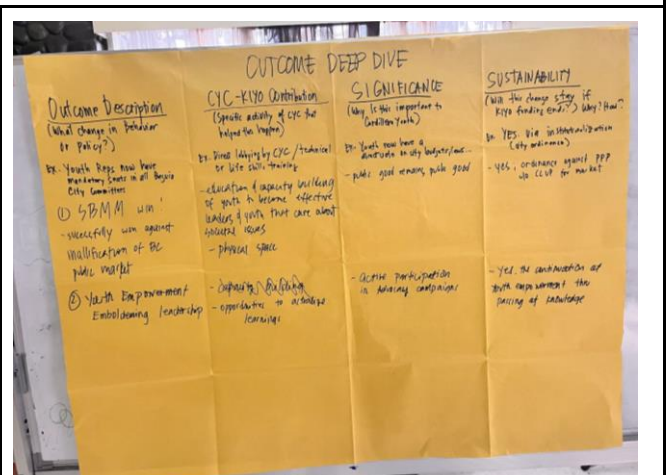 OUTCOME DEEP DIVE
Outcome Description
(What change in Behavior
or Policy?)
Ex. Youth Reps now have
mandatory seats in all Baguio
City Committees
① SBMM win!
- sucessfully won against
mallification of BC
public market
② Youth Empowerment
Emboldening leadership
CYC-KIYO Contribution
(Specific activity of CYC that
helped this happen)
Ex. Direct lobbying by CYC / technical
or life skills training
- education & capacity building
of youth to become effective
leaders & youth that care about
societal issues
- physical space
- capacity building
- opportunities to actualize
learnings
SIGNIFICANCE
(Why Is this important to
Cordilleran Youth)
Ex. Youth now have a
direct vote on city budgets/laws
- public good remains public good
- active participation
in Advocacy campaigns
SUSTAINABILITY
(Will this change stay if
KIYO funding ends?) Why? How?
Ex. YES. Via institutionalization
(city ordinance)
- yes, ordinance against PPP
w/o CLUP for market
- yes. the continuation of
youth empowerment thru
passing of knowledge